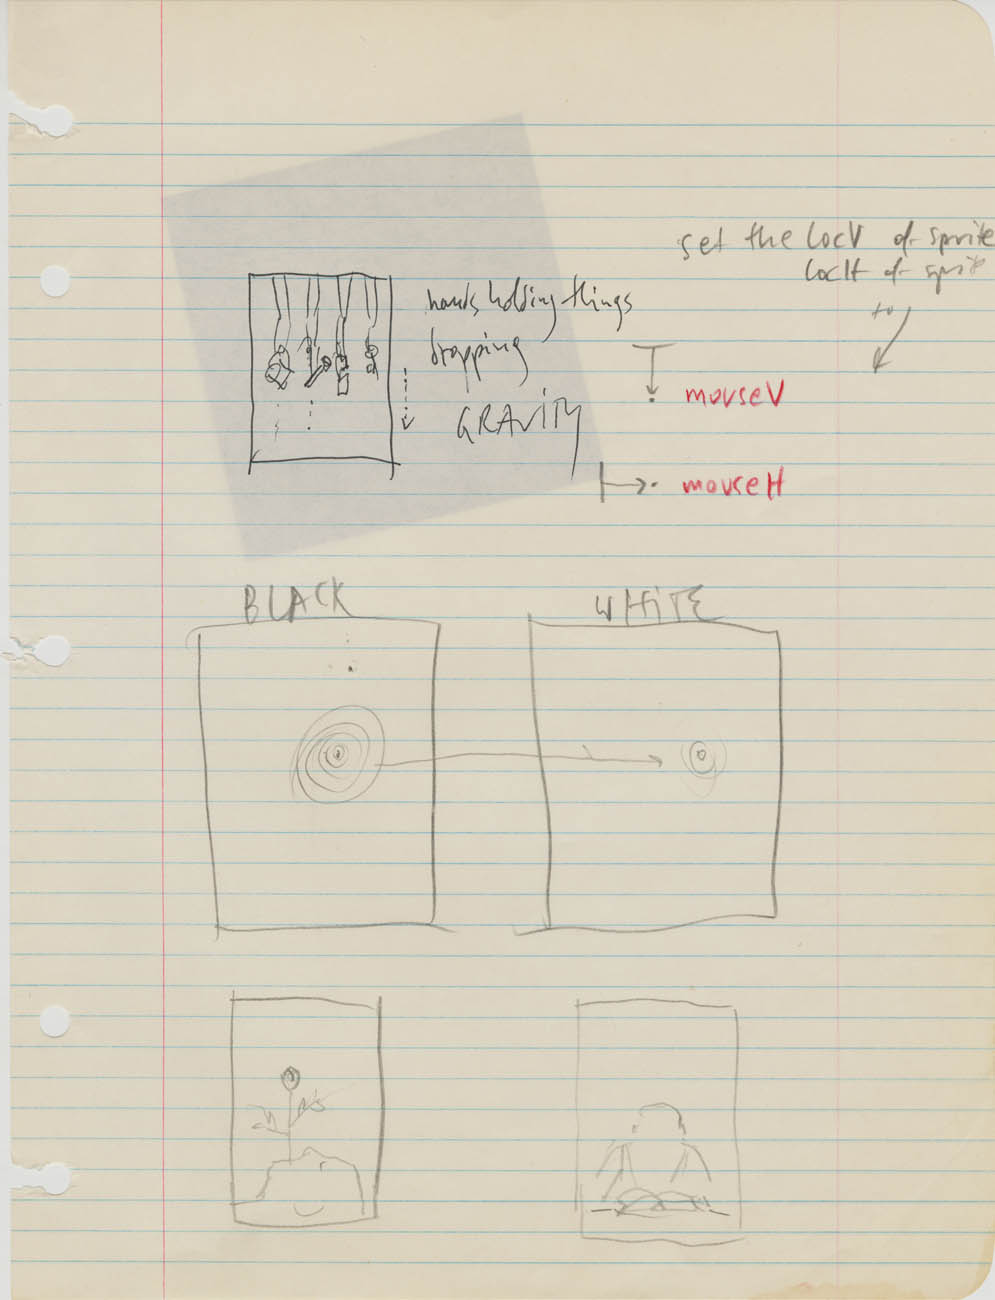 set the locV of sprite
locH of sprite
to
hands holding things
dropping
GRAVITY
mouseV
mouseH
BLACK
WHITE